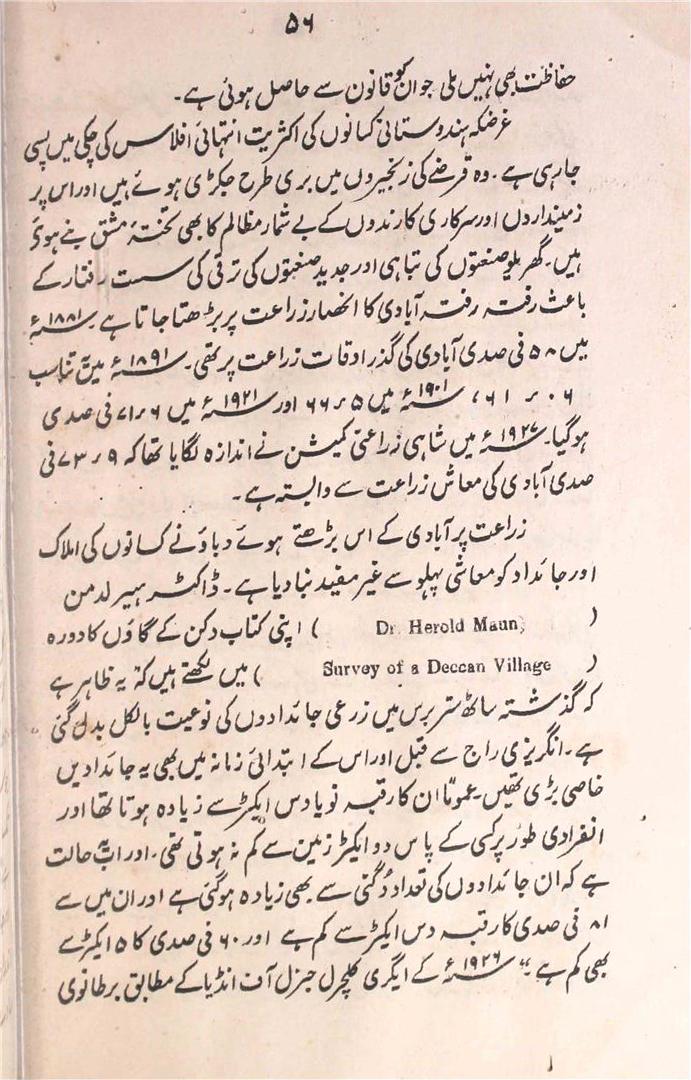 ۵۶
حفاظت بھی نہیں ملی جو ان کو قانون سے حاصل ہوئی ہے۔
غرضکہ ہندوستانی کسانوں کی اکثریت انتہائی افلاس کی چکی میں پسی
جارہی ہے۔ وہ قرضے کی زنجیروں میں بری طرح جکڑی ہوئے ہیں اور اس پر
زمینداروں اور سرکاری کارندوں کے بے شمار مظالم کا بھی تختۂ مشق بنے ہوئے
ہیں۔ گھریلو صنعتوں کی تباہی اور جدید صنعتوں کی ترقی کی سست رفتار کے
باعث رفتہ رفتہ آبادی کا انحصار زراعت پر بڑھتا جاتا ہے۔ ۱۸۸۱ء
میں ۵۸ فی صدی آبادی کی گذر اوقات زراعت پر تھی۔ ۱۸۹۱ء میں یہ تناسب
۶۱٫۰۶، ۱۹۰۱ء میں ۶۶٫۵ اور ۱۹۲۱ء میں ۷۱٫۶ فی صدی
ہوگیا۔ ۱۹۲۷ء میں شاہی زراعتی کمیشن نے اندازہ لگایا تھا کہ ۷۳٫۹ فی
صدی آبادی کی معاش زراعت سے وابستہ ہے۔
زراعت پر آبادی کے اس بڑھتے ہوئے دباؤ نے کسانوں کی املاک
اور جائداد کو معاشی پہلو سے غیر مفید بنا دیا ہے۔ ڈاکٹر ہیرلڈ من
(Dr. Herold Maun) اپنی کتاب دکن کے گاؤں کا دورہ
(Survey of a Deccan Village) میں لکھتے ہیں کہ "یہ ظاہر ہے
کہ گذشتہ ساٹھ ستر برس میں زرعی جائدادوں کی نوعیت بالکل بدل گئی
ہے۔ انگریزی راج سے قبل اور اس کے ابتدائی زمانہ میں بھی یہ جائدادیں
خاصی بڑی تھیں۔ عموماً ان کا رقبہ نو یا دس ایکڑ سے زیادہ ہوتا تھا اور
انفرادی طور پر کسی کے پاس دو ایکڑ زمین سے کم نہ ہوتی تھی۔ اور اب یہ حالت
ہے کہ ان جائدادوں کی تعداد دُگنی سے بھی زیادہ ہوگئی ہے اور ان میں سے
۸۱ فی صدی کا رقبہ دس ایکڑ سے کم ہے اور ۶۰ فی صدی کا ۵ ایکڑ سے
بھی کم ہے۔" ۱۹۲۶ء کے ایگری کلچرل جنرل آف انڈیا کے مطابق برطانوی